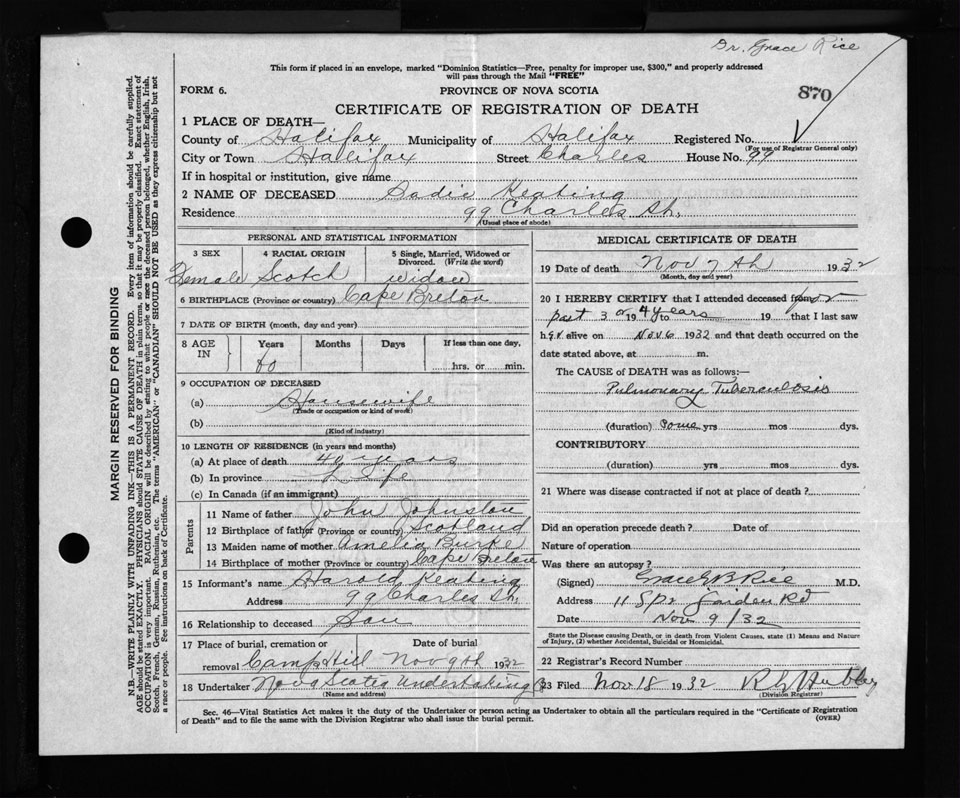 Dr. Grace Rice
This form if placed in an envelope, marked "Dominion Statistics—Free, penalty for improper use, $300," and properly addressed
will pass through the Mail "FREE"
FORM 6. PROVINCE OF NOVA SCOTIA 870
CERTIFICATE OF REGISTRATION OF DEATH
1 PLACE OF DEATH—
County of Halifax Municipality of Halifax Registered No.
(For use of Registrar General only)
City or Town Halifax Street Charles House No. 99
If in hospital or institution, give name
2 NAME OF DECEASED Sadie Keating
Residence 99 Charles St.
(Usual place of abode)
PERSONAL AND STATISTICAL INFORMATION
3 SEX 4 RACIAL ORIGIN 5 Single, Married, Widowed or
Divorced. (Write the word)
Female Scotch widow
6 BIRTHPLACE (Province or country) Cape Breton
7 DATE OF BIRTH (month, day and year)
8 AGE IN Years Months Days If less than one day,
60 hrs. or min.
9 OCCUPATION OF DECEASED
(a) Housewife
(Trade or occupation or kind of work)
(b)
(Kind of industry)
10 LENGTH OF RESIDENCE (in years and months)
(a) At place of death years
(b) In province Life
(c) In Canada (if an immigrant)
Parents
11 Name of father John Johnston
12 Birthplace of father (Province or country) Scotland
13 Maiden name of mother Amelia Burke
14 Birthplace of mother (Province or country) Cape Breton
15 Informant's name Harold Keating
Address 99 Charles St.
16 Relationship to deceased Son
17 Place of burial, cremation or Date of burial
removal Camp Hill Nov 9th 1932
18 Undertaker Nova Scotia Undertaking
(Name and address)
MEDICAL CERTIFICATE OF DEATH
19 Date of death Nov 7th 1932
(Month, day and year)
20 I HEREBY CERTIFY that I attended deceased from for
past 3 or 19 4 years to 19 that I last saw
her alive on Nov 6 1932 and that death occurred on the
date stated above, at m.
The CAUSE of DEATH was as follows:—
Pulmonary Tuberculosis
(duration) Some yrs mos dys.
CONTRIBUTORY
(duration) yrs mos dys.
21 Where was disease contracted if not at place of death ?
Did an operation precede death? Date of
Nature of operation
Was there an autopsy?
(Signed) Grace B Rice M.D.
Address Rd
Date Nov 9/32
State the Disease causing Death, or in death from Violent Causes, state (1) Means and Nature
of Injury, (2) whether Accidental, Suicidal or Homicidal.
22 Registrar's Record Number
23 Filed Nov 18 1932 Hubley
(Division Registrar)
Sec. 46—Vital Statistics Act makes it the duty of the Undertaker or person acting as Undertaker to obtain all the particulars required in the "Certificate of Registration
of Death" and to file the same with the Division Registrar who shall issue the burial permit. (OVER)
MARGIN RESERVED FOR BINDING
N.B.—WRITE PLAINLY WITH UNFADING INK—THIS IS A PERMANENT RECORD. Every item of information should be carefully supplied.
AGE should be stated EXACTLY. PHYSICIANS should STATE CAUSE OF DEATH in plain terms, so that it may be properly classified. Exact statement of
OCCUPATION is very important. RACIAL ORIGIN will be described by stating to what people or race the deceased person belonged, whether English, Irish,
Scotch, French, German, Russian, Ruthenian, etc. The terms "AMERICAN" or "CANADIAN" SHOULD NOT BE USED as they express citizenship but not
a race or people. See instructions on back of Certificate.